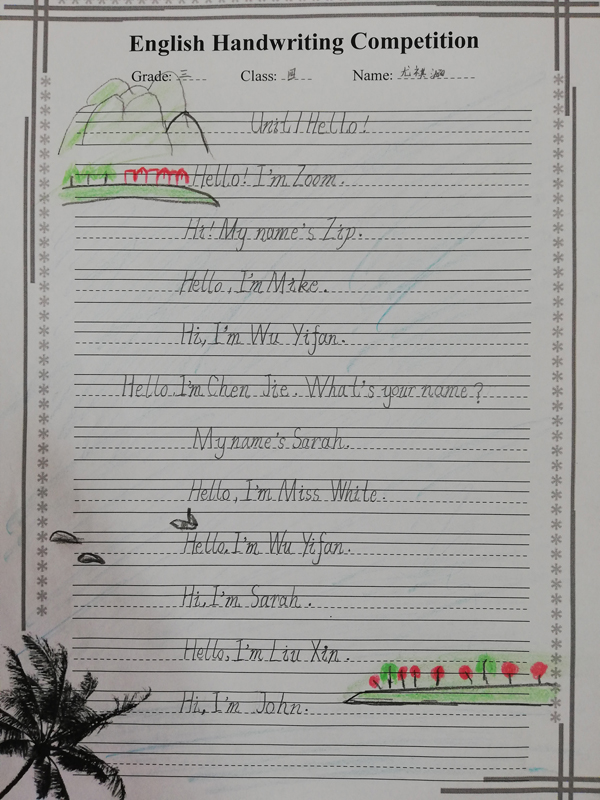 English Handwriting Competition
Grade: 三 Class: 四 Name: 尤祺
Unit 1 Hello!
Hello! I'm Zoom.
Hi! My name's Zip.
Hello, I'm Mike.
Hi, I'm Wu Yifan.
Hello I'm Chen Jie. What's your name?
My name's Sarah.
Hello, I'm Miss White.
Hello, I'm Wu Yifan.
Hi, I'm Sarah.
Hello, I'm Liu Xin.
Hi, I'm John.